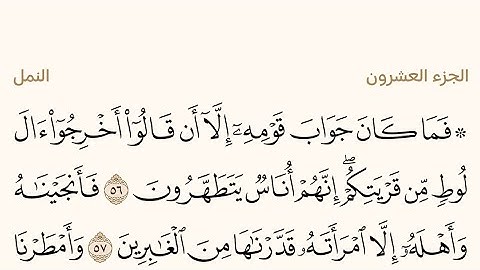 الجزء العشرون النمل
۞ فَمَا كَانَ جَوَابَ قَوْمِهِۦٓ إِلَّآ أَن قَالُوٓاْ أَخۡرِجُوٓاْ ءَالَ
لُوطٖ مِّن قَرۡيَتِكُمۡۖ إِنَّهُمۡ أُنَاسٞ يَتَطَهَّرُونَ ٥٦ فَأَنجَيۡنَٰهُ
وَأَهۡلَهُۥٓ إِلَّا ٱمۡرَأَتَهُۥ قَدَّرۡنَٰهَا مِنَ ٱلۡغَٰبِرِينَ ٥٧ وَأَمۡطَرۡنَا